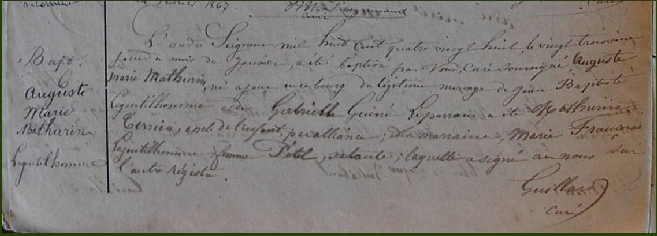 1867
curé
Bapt.
Auguste
Marie
Mathurin
Legentilhomme
L'an du Seigneur mil huit cent quatre vingt huit le vingt troisième
jour du mois de Janvier, a été baptisé par Nous, Curé soussigné Auguste
Marie Mathurin, né à jour au bourg du légitime mariage de Jean Baptiste
Legentilhomme et de Gabrielle Guiné. Le parrain a été Mathurin
Terrien, oncle de l'enfant, par alliance; La marraine, Marie Françoise
Legentilhomme femme Petl, ; laquelle a signé avec nous sur
l'autre registre.
Guillard
curé